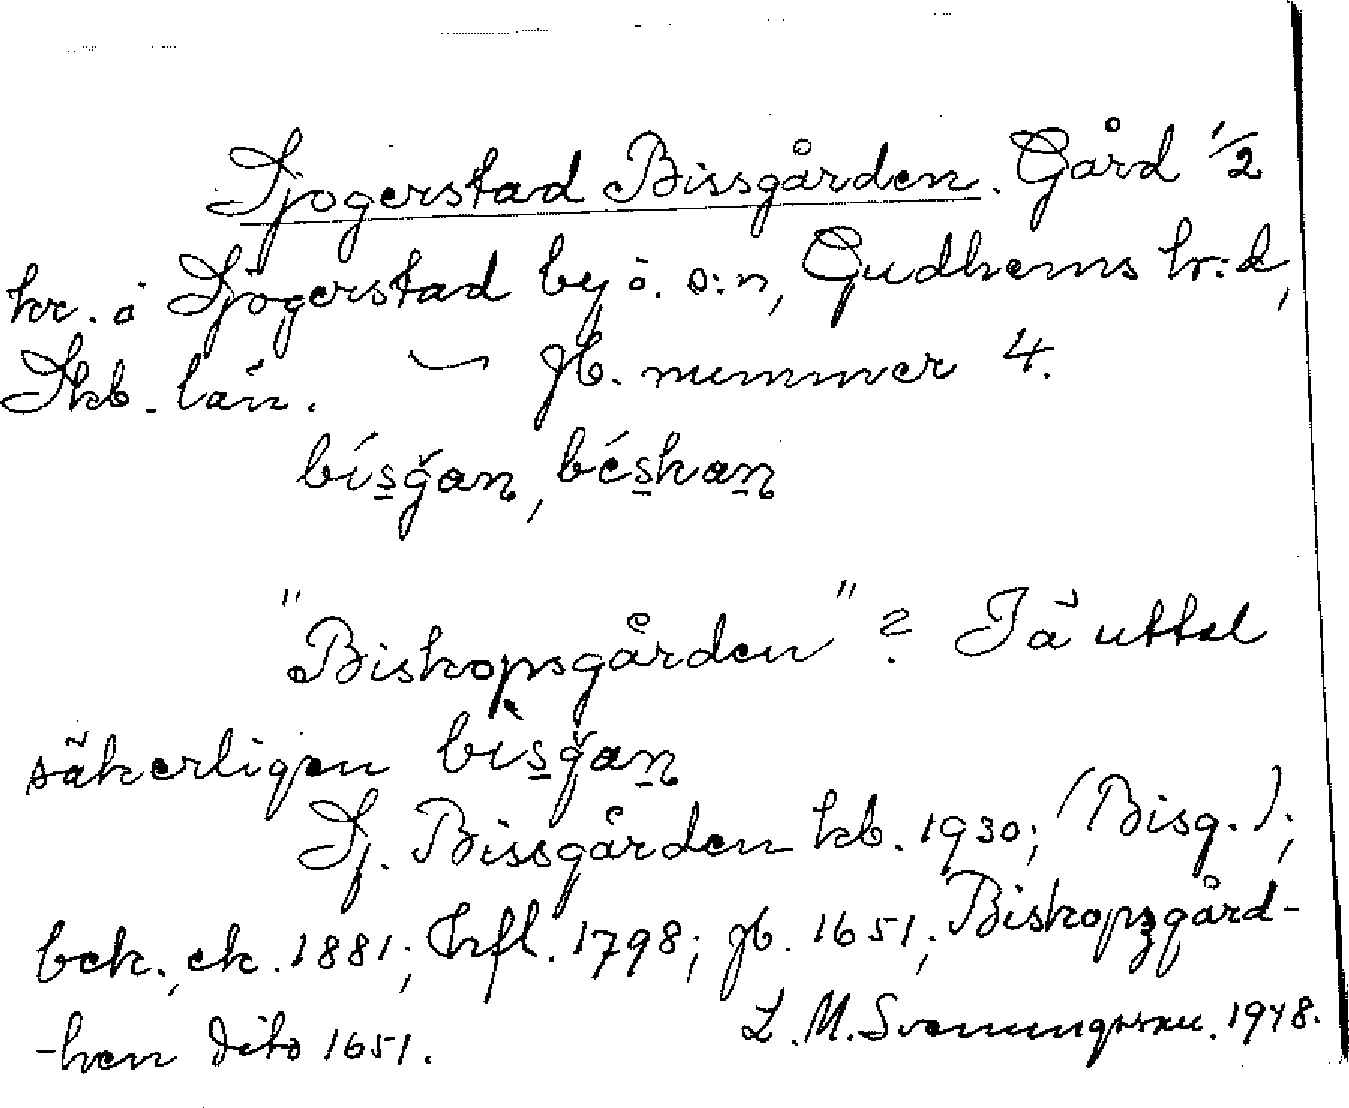 Sjogerstad Bissgården. Gård 1/2
hr. å Sjogerstad by o. s:n, Gudhems hr:d,
Skb. län. — jb. nummer 4.
bís̲ğan, béskan
"Bishopsgården" ? Jä uttal
säkerligen bìs̲ğan
Sj. Bissgården kb. 1930; (Bisg.);
bck., ek. 1881; Hfl. 1798; jb. 1651; Biskopzgård-
-hen dito 1651. L. M. Svenungsson. 1948.